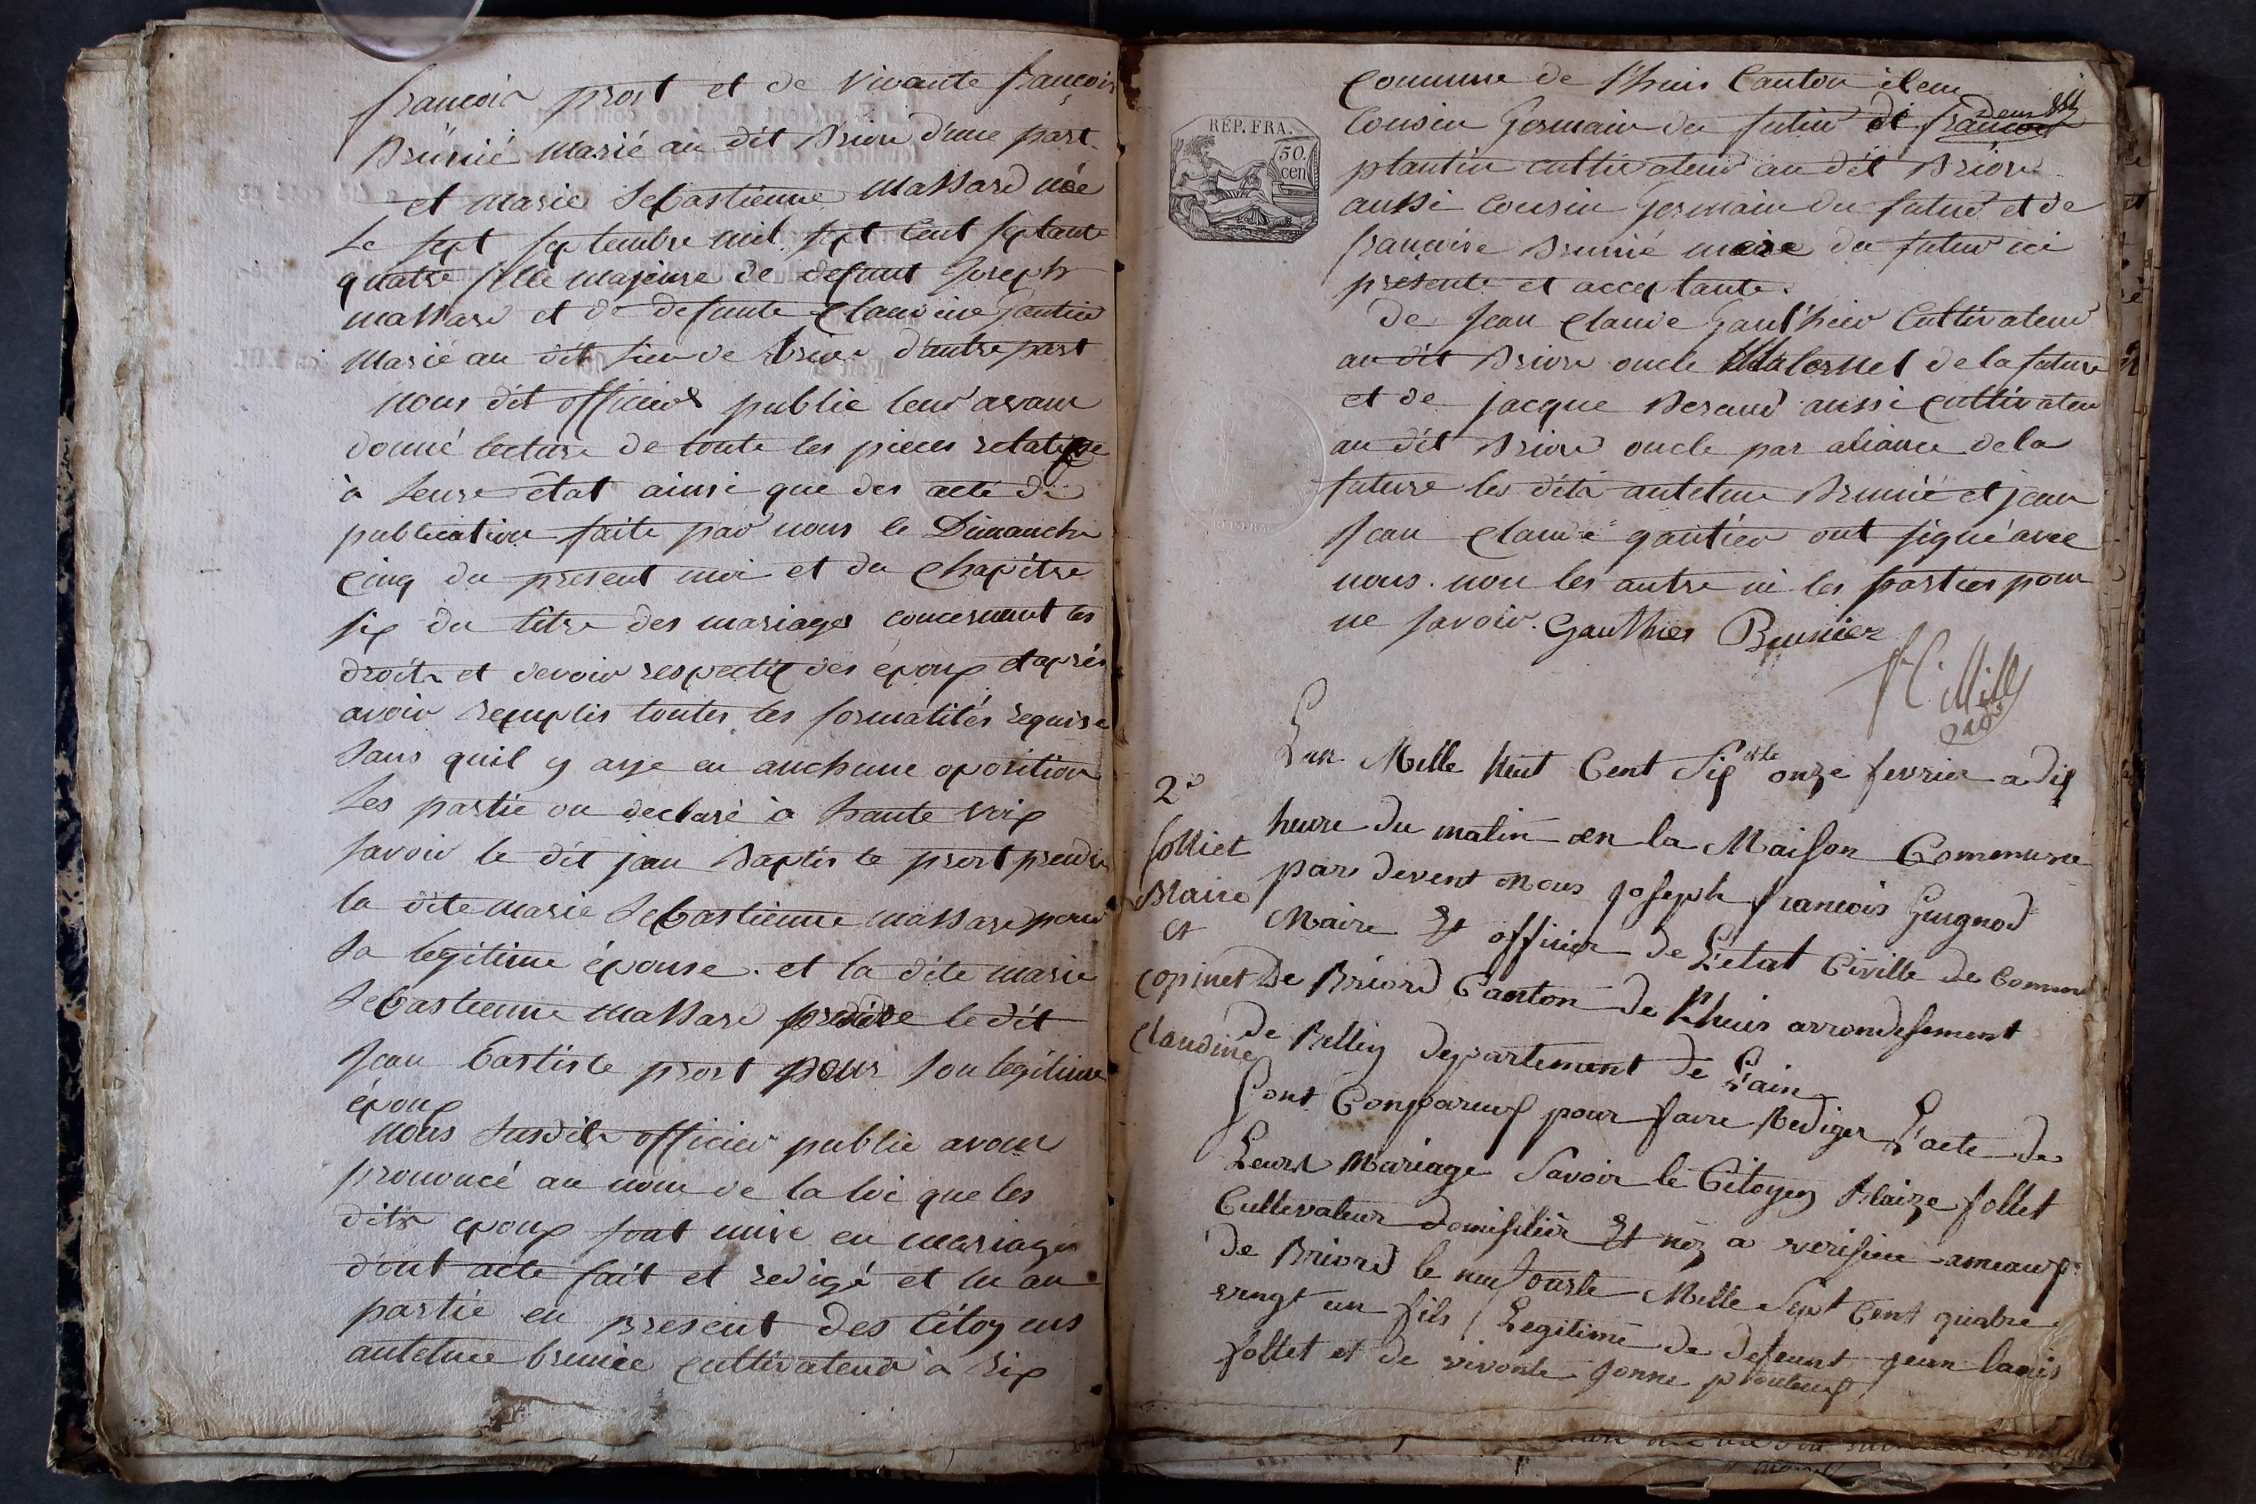 françois prost et de vivante françois
Brunié marié au dit Brior d'une part
et marie Sebastienne massard née
Le sept septembre mil sept cent septante
quatre fille majeure de defunt Joseph
massard et de defunte Claudine Gautier
marié au dit lieu de Brior d'autre part
nous dit officier public leur avans
donné lecture de toute les pieces relative
à leurs êtat ainsi que des acte de
publication faite par nous le Dimanche
cinq du present moi et du chapitre
six du titre des mariages concernant les
droits et devoir respectif des époux et après
avoir remplis toutes les formalités requise
sans quil y aye eu auchune oposition
Les partie on declaré à haute voix
savoir le dit jean Baptiste prost prendre
la dite marie Sebastienne massard pour
sa legitime épouse. et la dite marie
Sebastienne massard le dit
Jean bastiste prost pour son legitime
époux
nous susdit officier public avons
prononcé au nom de la loi que les
dits epoux sont unis en mariage
dont acte fait et redigé et lu au
partie en present des Citoyens
antelme brunie cultivateur à Rix
commune de Lhuis Canton
Cousin Germain du futur de françois
plantin cultivateur au dit Brior
aussi cousin germain du futur et de
françoise Brunié mere du futur ici
presente et acceptante.
RÉP. FRA.
50
cen
de Jean Claude Gauthier Cultivateur
au dit Brior oncle Maternel de la future
et de jacque Beraud aussi cultivateur
au dit Brior oncle par aliance de la
future les dits antelme Brunié et jean
Jean claude gautier ont signé avec
nous. non les autre ni les parties pour
ne savoir. Gauthier Brunier
Lan Mille huit Cent Six et le onze fevrier a dix
heure du matin en la Maison Commune
par devent Nous Joseph francois Guignod
Maire Et officier de L'etat Civille de Commune
De Briord Canton de Lhuis arrondissement
de Belley departement de L'ain
2e
folliet
Blaire
et
copinet
claudine
Sont Comparus pour faire Rediger L'acte de
Leurs Mariage Savoir le Citoyen Blaize follet
Cultivateur domisilié Et néz a verisieu ameaux
de Briord le neuf Mille Sept Cent quatre
vingt un fils Legitime de defeunt jean
follet et de vivonte Jonne